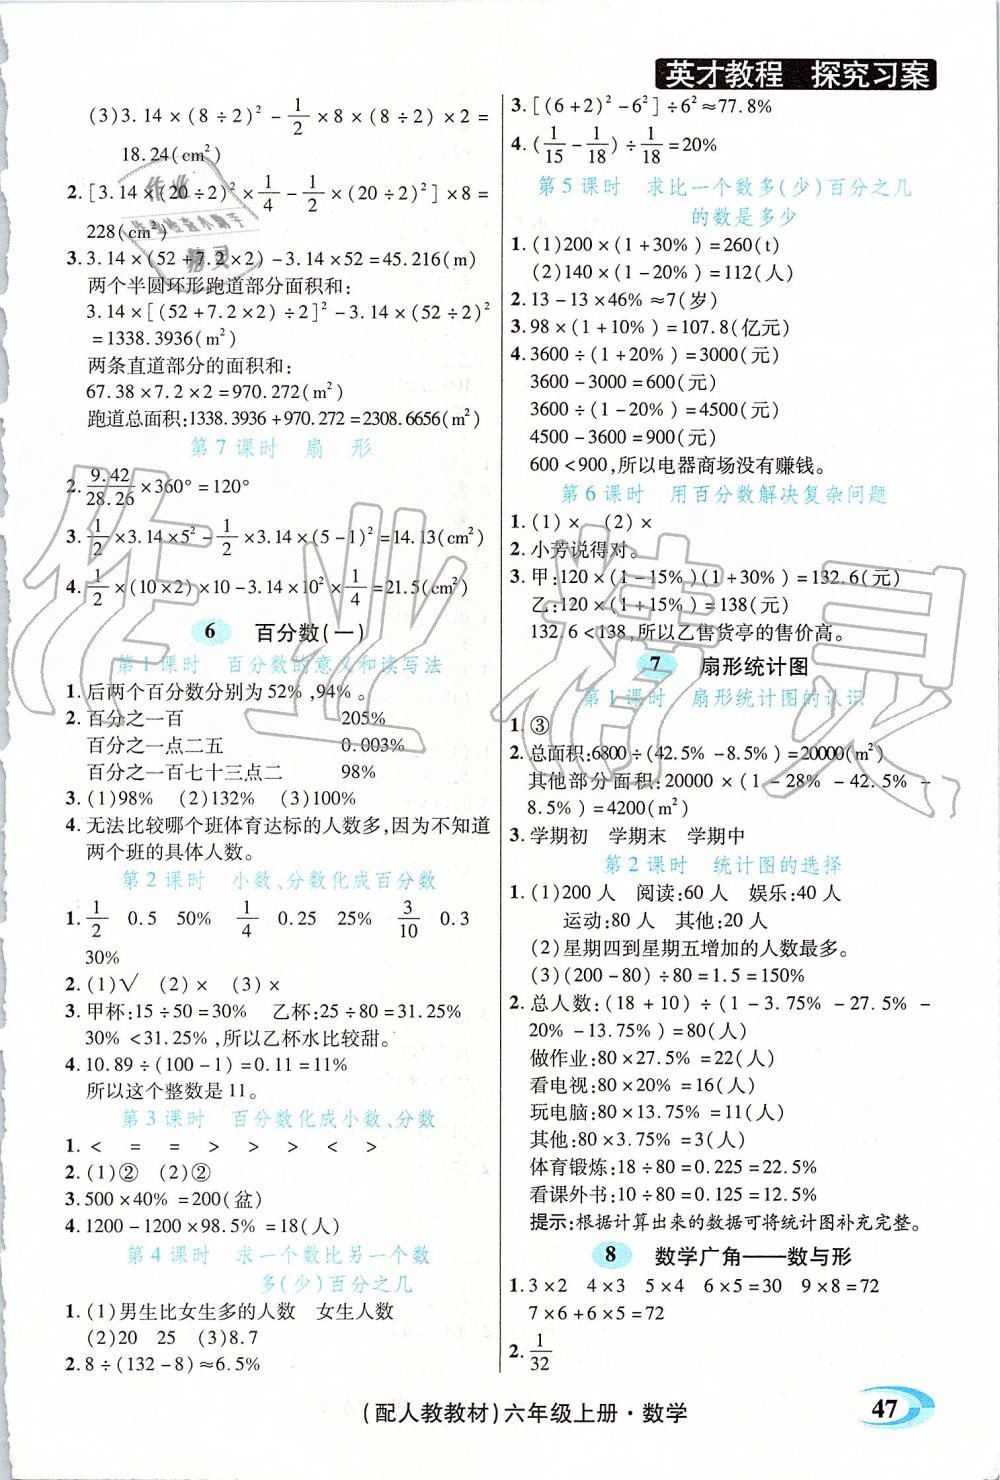 英才教程 探究习案
(3)3.14×(8÷2)²-1/2×8×(8÷2)×2=
18.24(cm²)
2.[3.14×(20÷2)²×1/4-1/2×(20÷2)²]×8=
228(cm²)
3.3.14×(52+7.2×2)-3.14×52=45.216(m)
两个半圆环形跑道部分面积和:
3.14×[(52+7.2×2)÷2]²-3.14×(52÷2)²
=1338.3936(m²)
两条直道部分的面积和:
67.38×7.2×2=970.272(m²)
跑道总面积:1338.3936+970.272=2308.6656(m²)
第7课时 扇 形
2.9.42/28.26×360°=120°
3.1/2×3.14×5²-1/2×3.14×(5-1)²=14.13(cm²)
4.1/2×(10×2)×10-3.14×10²×1/4=21.5(cm²)
6 百分数(一)
第1课时 百分数的意义和读写法
1.后两个百分数分别为52%,94%。
2.百分之一百 205%
百分之一点二五 0.003%
百分之一百七十三点二 98%
3.(1)98% (2)132% (3)100%
4.无法比较哪个班体育达标的人数多,因为不知道
两个班的具体人数。
第2课时 小数、分数化成百分数
1.1/2 0.5 50% 1/4 0.25 25% 3/10 0.3
30%
2.(1)√ (2)× (3)×
3.甲杯:15÷50=30% 乙杯:25÷80=31.25%
30%<31.25%,所以乙杯水比较甜。
4.10.89÷(100-1)=0.11=11%
所以这个整数是11。
第3课时 百分数化成小数、分数
1.< = = > > > < >
2.(1)② (2)②
3.500×40%=200(盆)
4.1200-1200×98.5%=18(人)
第4课时 求一个数比另一个数
多(少)百分之几
1.(1)男生比女生多的人数 女生人数
(2)20 25 (3)8.7
2.8÷(132-8)≈6.5%
3.[(6+2)²-6²]÷6²≈77.8%
4.(1/15-1/18)÷1/18=20%
第5课时 求比一个数多(少)百分之几
的数是多少
1.(1)200×(1+30%)=260(t)
(2)140×(1-20%)=112(人)
2.13-13×46%≈7(岁)
3.98×(1+10%)=107.8(亿元)
4.3600÷(1+20%)=3000(元)
3600-3000=600(元)
3600÷(1-20%)=4500(元)
4500-3600=900(元)
600<900,所以电器商场没有赚钱。
第6课时 用百分数解决复杂问题
1.(1)× (2)×
2.小芳说得对。
3.甲:120×(1-15%)(1+30%)=132.6(元)
乙:120×(1+15%)=138(元)
132.6<138,所以乙售货亭的售价高。
7 扇形统计图
第1课时 扇形统计图的认识
1.③
2.总面积:6800÷(42.5%-8.5%)=20000(m²)
其他部分面积:20000×(1-28%-42.5%-
8.5%)=4200(m²)
3.学期初 学期末 学期中
第2课时 统计图的选择
1.(1)200人 阅读:60人 娱乐:40人
运动:80人 其他:20人
(2)星期四到星期五增加的人数最多。
(3)(200-80)÷80=1.5=150%
2.总人数:(18+10)÷(1-3.75%-27.5%-
20%-13.75%)=80(人)
做作业:80×27.5%=22(人)
看电视:80×20%=16(人)
玩电脑:80×13.75%=11(人)
其他:80×3.75%=3(人)
体育锻炼:18÷80=0.225=22.5%
看课外书:10÷80=0.125=12.5%
提示:根据计算出来的数据可将统计图补充完整。
8 数学广角——数与形
1.3×2 4×3 5×4 6×5=30 9×8=72
7×6+6×5=72
2.1/32
(配人教教材)六年级上册·数学
47
作业精灵